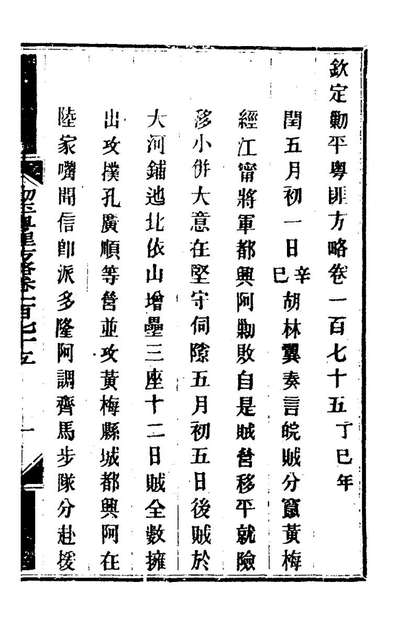 欽定勦平粵匪方略卷一百七十五丁巳年
閏五月初一日辛巳胡林翼奏言皖賊分竄黃梅
經江甯將軍都興阿勦敗自是賊營移平就險
移小併大意在堅守伺隙五月初五日後賊於
大河鋪迤北依山增壘三座十二日賊全數擁
出攻撲孔廣順等營並攻黃梅縣城都興阿在
陸家嘴聞信卽派多隆阿調齊馬步隊分赴援
勦平粵匪方略卷一百七十五
一